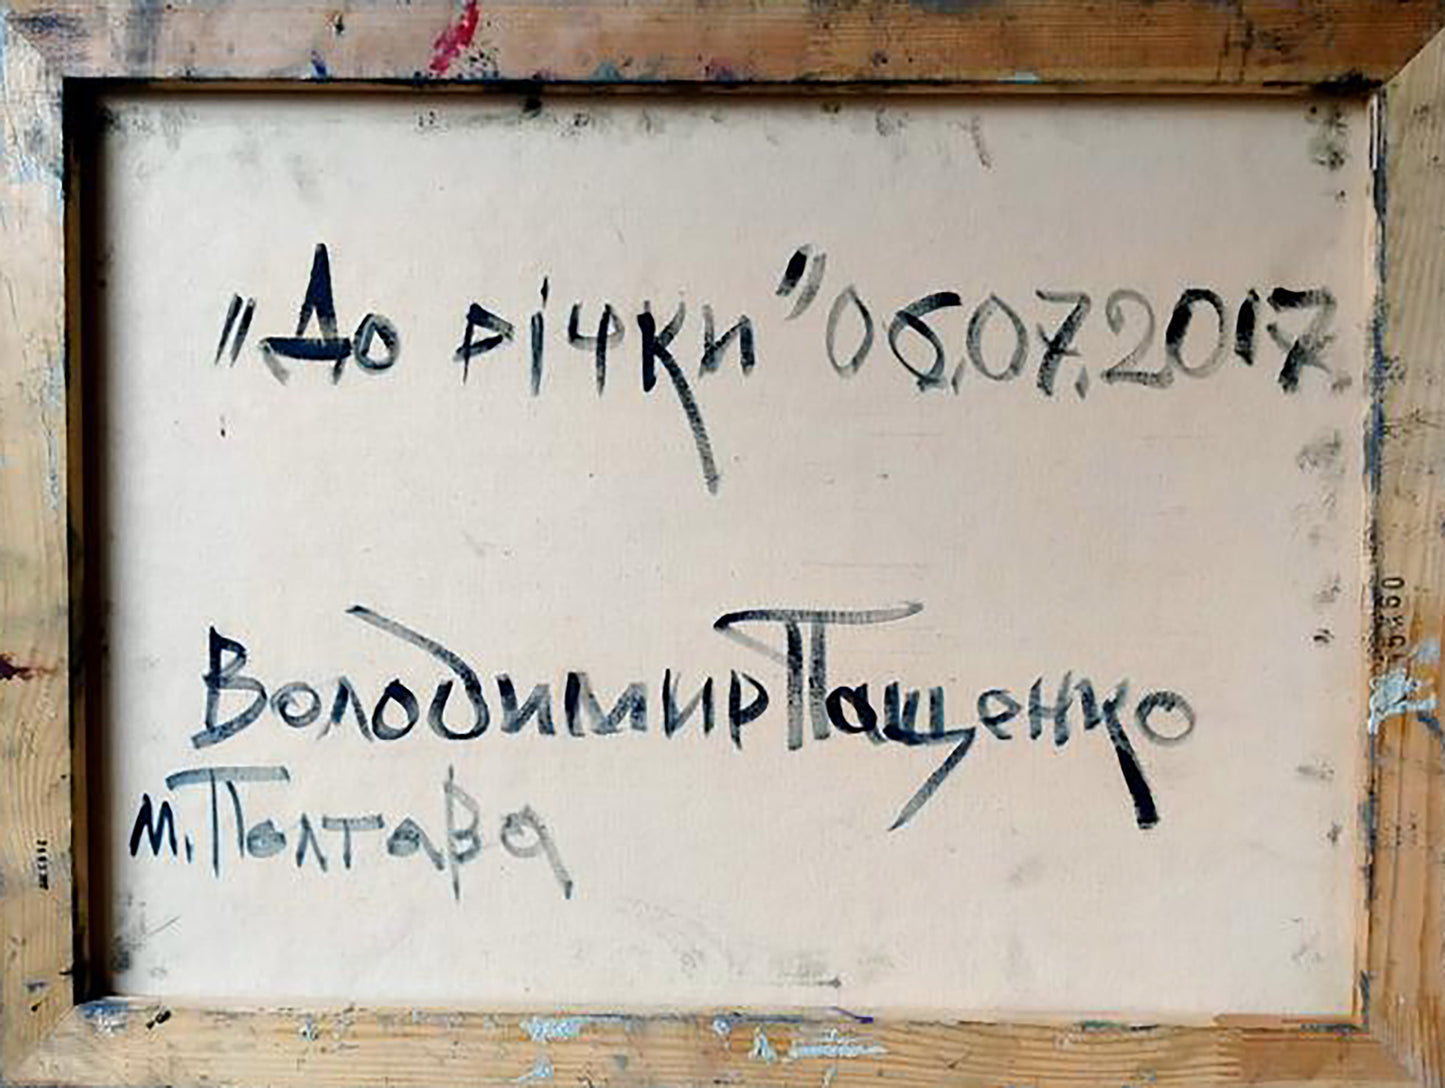 "До річки" 06.07.2017
Володимир Пащенко
м. Полтава